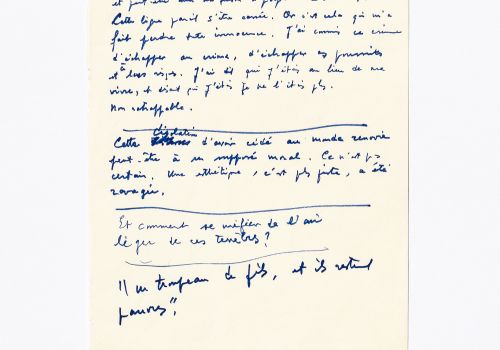 et peut-être
Cette ligne paraît s'être cassée. Or c'est cela qui m'a
fait perdre mon innocence. J'ai commis ce crime
d'échapper au crime, d'échapper aux poursuites
et à leurs J'ai dit que j'étais au lieu de me
vivre, et disant que j'étais je ne l'étais plus.
Non échappable.
désolation
Cette d'avoir cédé au monde renvoie
peut-être à un supposé moral. Ce n'est pas
certain. Une esthétique, c'est plus juste, a été
ravagée.
Et comment se méfier de l'air
léger de ces ténèbres?
"Un troupeau de fils, et ils restent
pauvres".